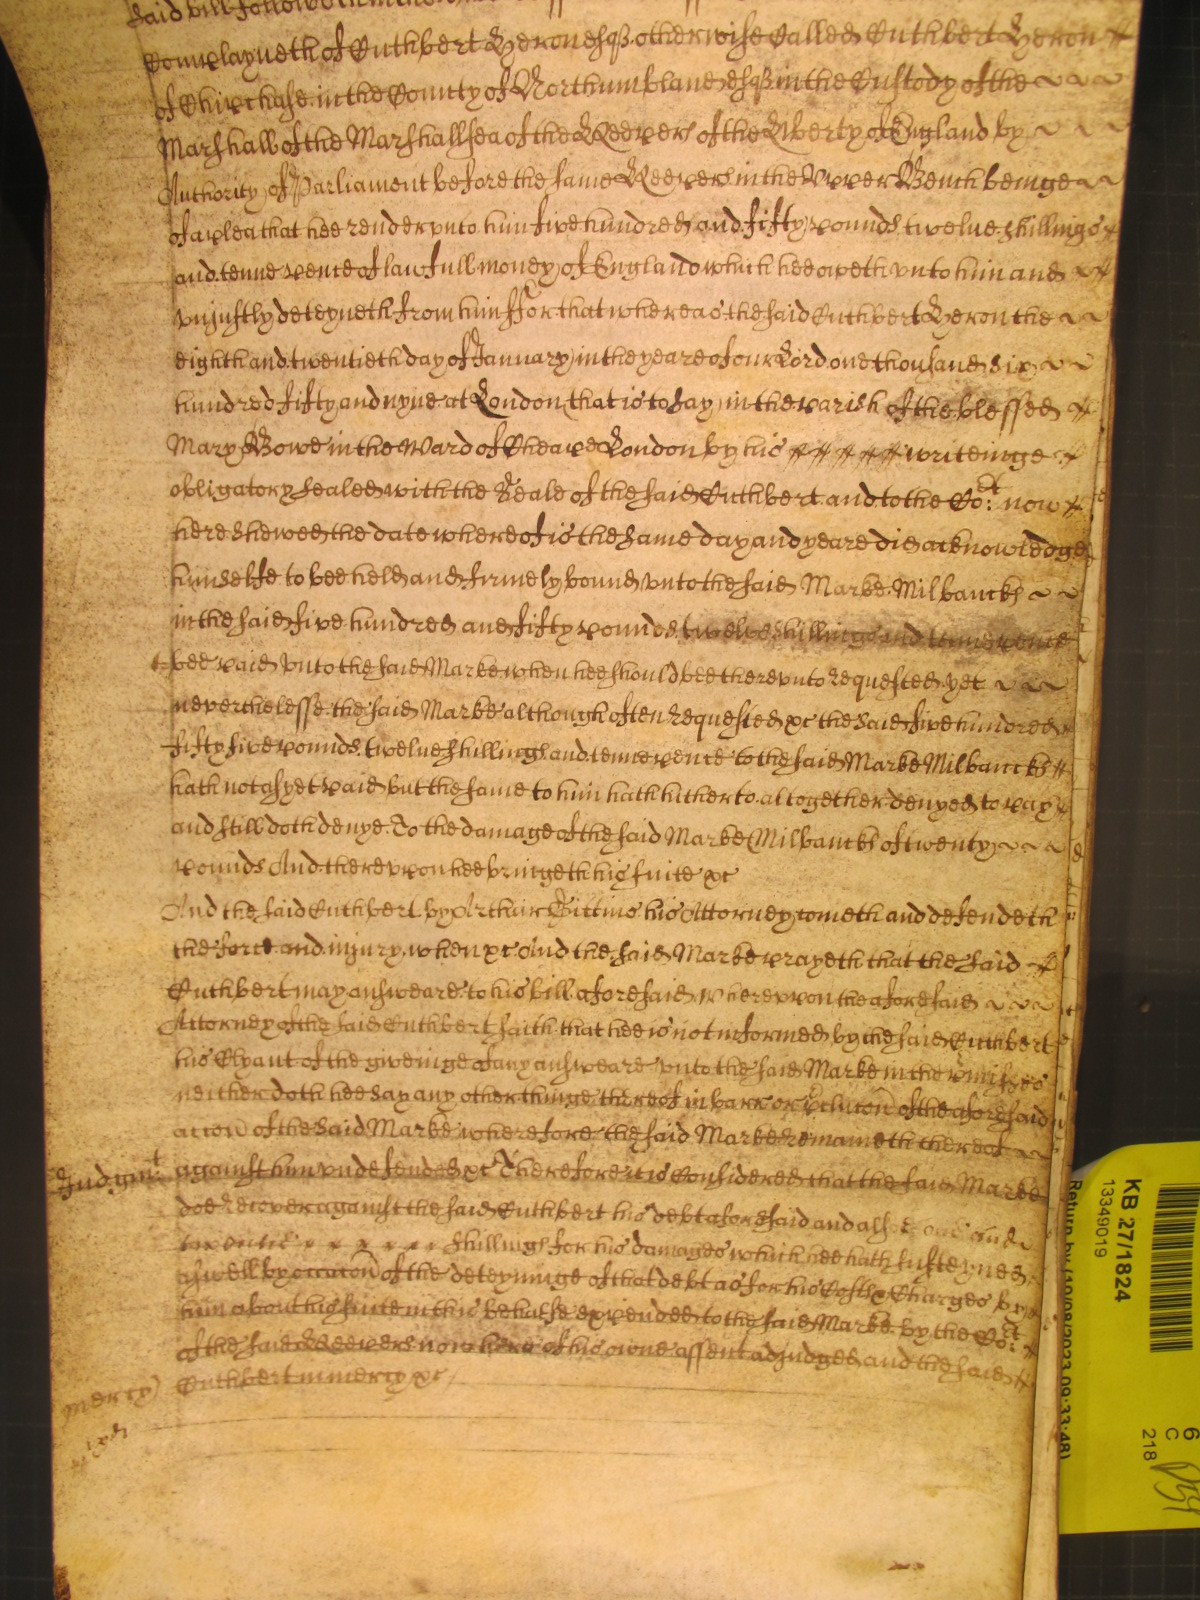 said bill followeth in theis
Complayneth of Cuthbert Heron esqr otherwise Called Cuthbert Heron
of Chipchase in the County of Northumbland esqr in the Custody of the
Marshall of the Marshallsea of the Keepers of the Liberty of England by
Authority of Parliament before the same Keepers in the Upper Bench beinge
of a plea that hee render unto him five hundred and fifty pounds twelve shillings
and tenne pence of lawfull money of England which hee oweth unto him and
unjustly deteyneth from him ffor that whereas the said Cuthbert Heron the
eighth and twentieth day of January in the yeare of our Lord one thousand six
hundred fifty and nyne at London that is to say in the parish of the blessed
Mary Bowe in the Ward of Cheape London by his writeinge
obligatory sealed with the Seale of the said Cuthbert and to the Cort now
here shewed the date whereof is the same day and yeare did acknowledge
himselfe to bee held and firmely bound unto the said Marke Milbancke
in the said five hundred and fifty pounds twelve shillings and tenne pence
bee paid unto the said Marke when hee should bee thereunto requested yet
neverthelesse the said Marke although often requested &c the said five hundred
fifty five pounds twelve shillings and tenne pence to the said Marke Milbancke
hath not as yet paid but the same to him hath hitherto altogether denyed to pay
and still doth denye To the damage of the said Marke Milbancke of twenty
pounds And thereupon hee bringeth his suite &c
And the said Cuthbert by Arthur his Attorney cometh and defendeth
the force and injury when &c And the said Marke prayeth that the said
Cuthbert may answeare to his bill aforesaid whereupon the aforesaid
Attorney of the said Cuthbert saith that hee is not informed by the said Cuthbert
his Clyant of the giveinge of any answeare unto the said Marke in the premisses
neither doth hee say any other thinge thereof in barr or of the aforesaid
accon of the said Marke wherefore the said Marke remaineth thereof
Judgmt against him undefended &c Therefore it is Considered that the said Marke
doe recover against the said Cuthbert his debt aforesaid and alsoe one and
twentie shillings for his damages which hee hath susteyned
aswell by occacon of the deteyninge of that debt as for his Costs & Charges by
him about his suite in this behalfe expended to the said Marke by the Cort
of the said Keepers now here of his owne assent adjudged and the said
mercy Cuthbert in mercy &c
KB 27/1824
13349019
Return by (10/08/2023 09:33:48)
6
C
218